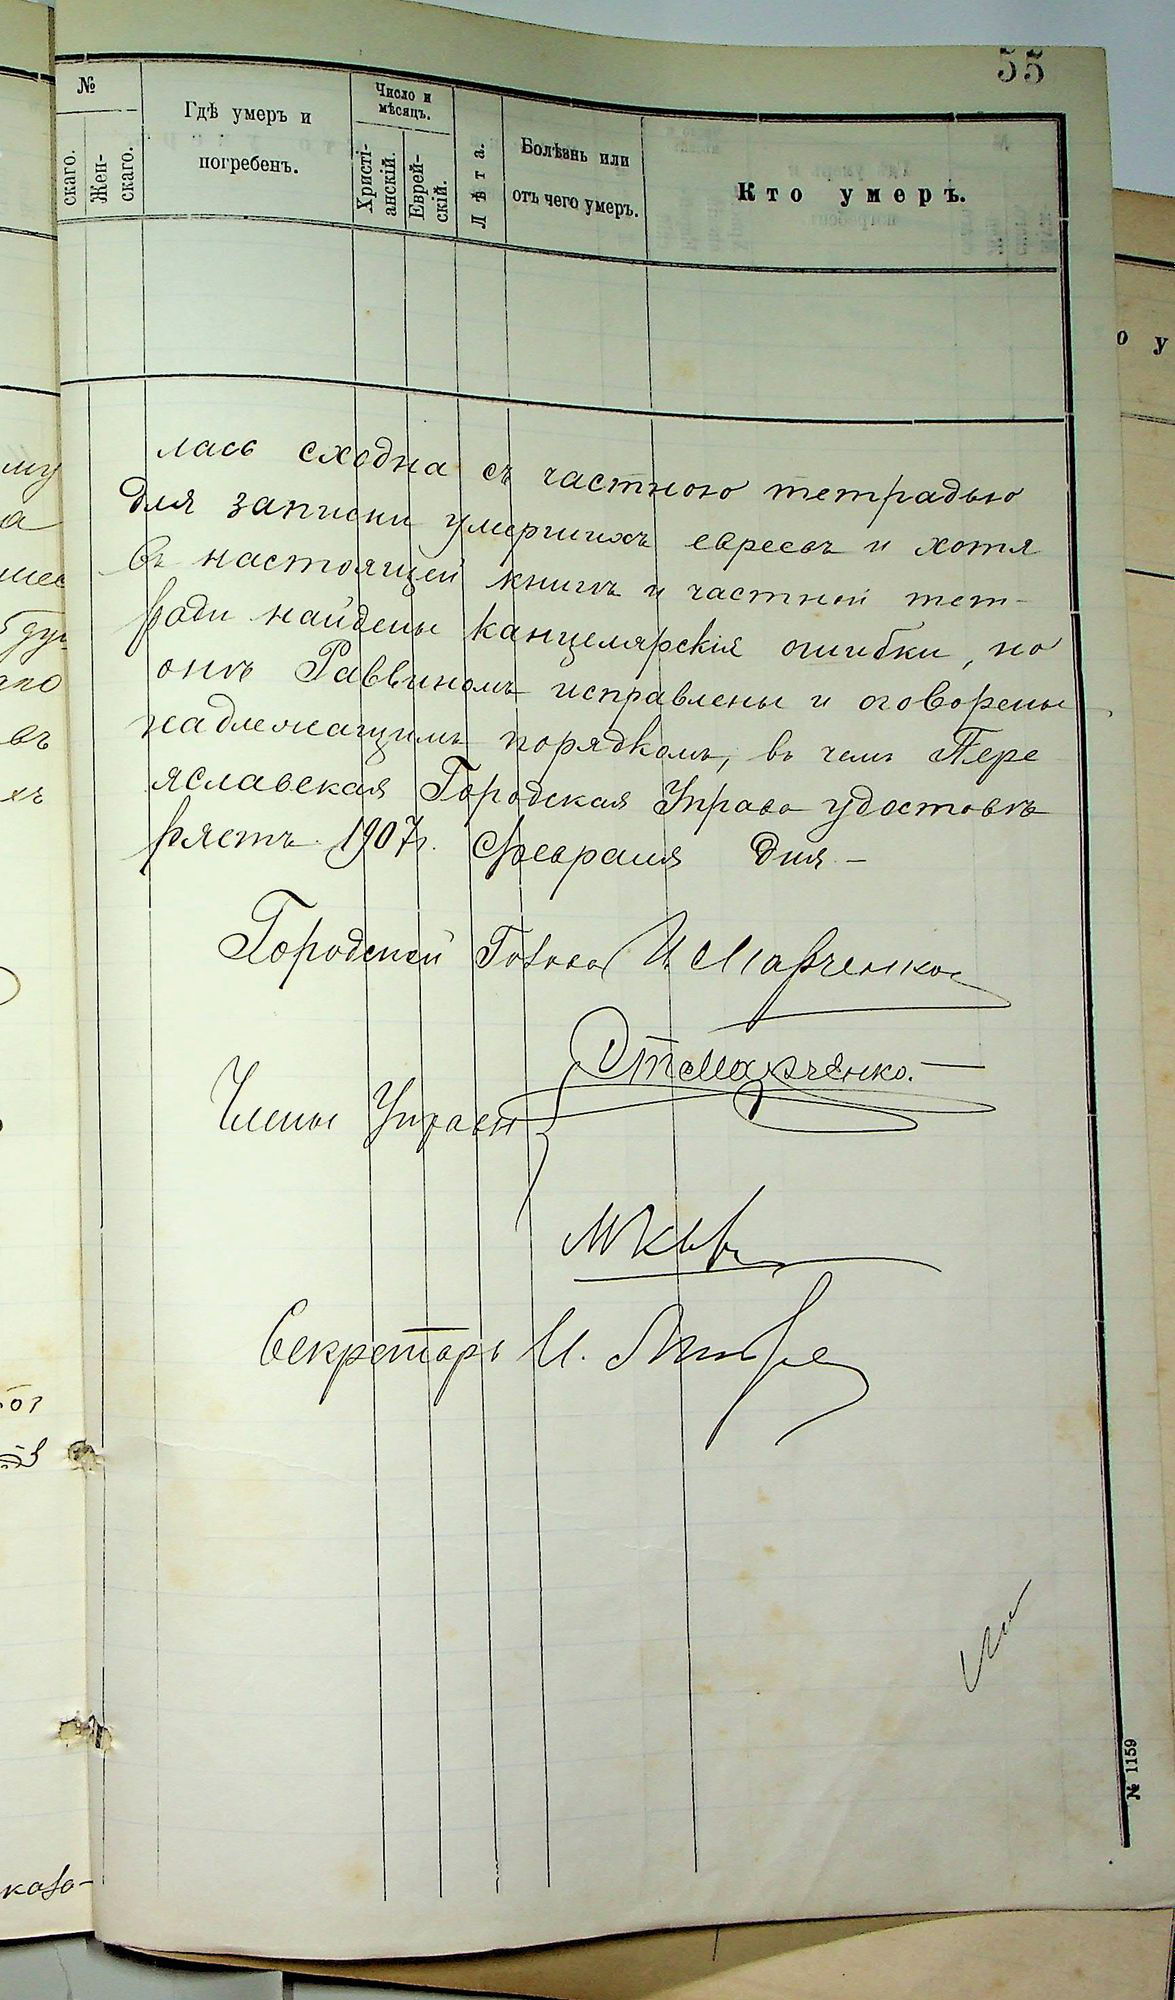 55
№
скаго.
Жен-
скаго.
Гдѣ умеръ и
погребенъ.
Число и
мѣсяцъ.
Христі-
анскій.
Еврей-
скій.
Лѣта.
Болѣзнь или
отъ чего умеръ.
Кто умеръ.
лась сходна съ частною тетрадью
для записки умершихъ евреевъ и хотя
въ настоящей книгѣ и частной тет-
ради найдены канцелярскія ошибки, но
онѣ Раввиномъ исправлены и оговорены
надлежащимъ порядкомъ, въ чемъ Пере
яславская Городская Управа удостовѣ
ряетъ. 1907 г. Февраля дня –
Городской Голова И Марченко
Марченко. –
Члены Управы
Секретарь И.
№ 1159
о у
му
а
въ
хъ